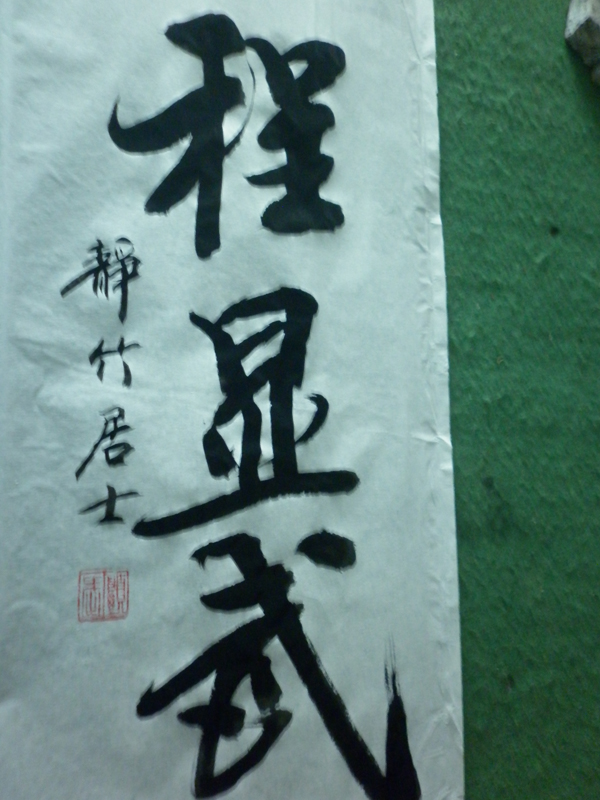 程显武
静竹居士